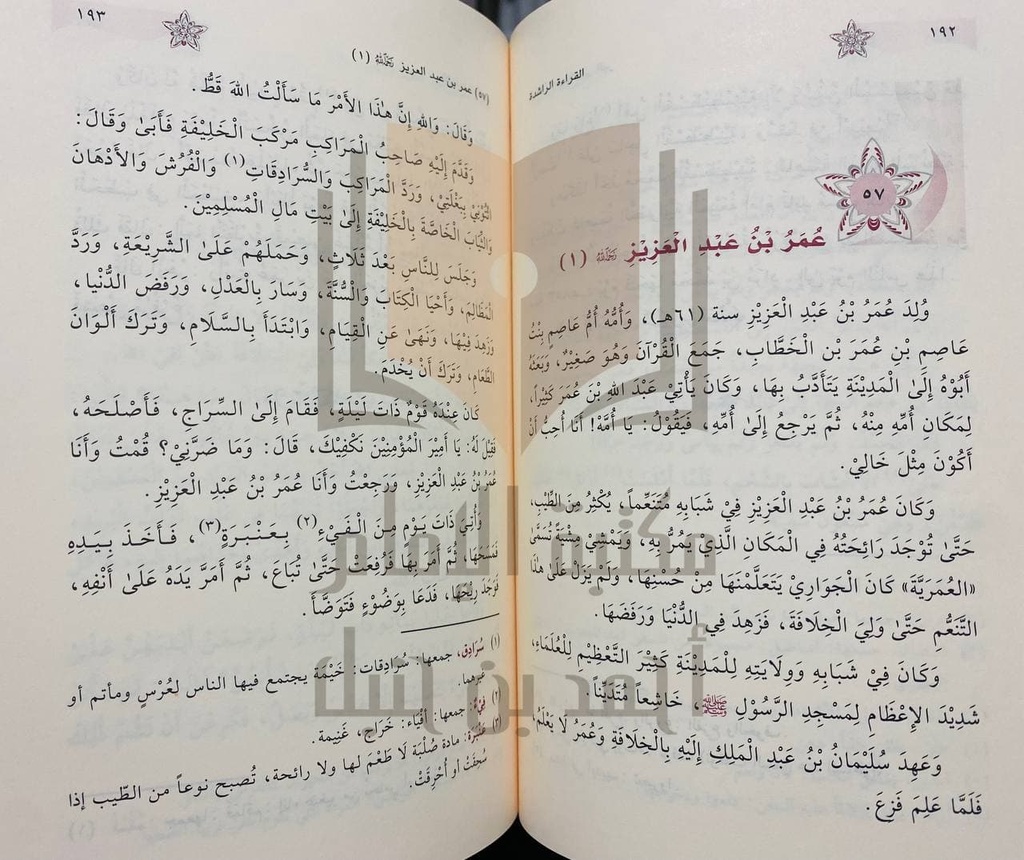 ١٩٢
القراءة الراشدة
٥٧
عُمَرُ بْنُ عَبْدِ الْعَزِيْزِ رَحِمَهُ اللهُ (١)
وُلِدَ عُمَرُ بْنُ عَبْدِ الْعَزِيْزِ سنة (٦١هـ)، وَأُمُّهُ أُمُّ عَاصِمٍ بِنْتُ
عَاصِمِ بْنِ عُمَرَ بْنِ الْخَطَّابِ، جَمَعَ الْقُرْآنَ وَهُوَ صَغِيْرٌ، وَبَعَثَهُ
أَبُوْهُ إِلَىٰ الْمَدِيْنَةِ يَتَأَدَّبُ بِهَا، وَكَانَ يَأْتِيْ عَبْدَ اللهِ بْنَ عُمَرَ كَثِيْراً،
لِمَكَانِ أُمِّهِ مِنْهُ، ثُمَّ يَرْجِعُ إِلَىٰ أُمِّهِ، فَيَقُوْلُ: يَا أُمَّهْ! أَنَا أُحِبُّ أَنْ
أَكُوْنَ مِثْلَ خَالِيْ.
وَكَانَ عُمَرُ بْنُ عَبْدِ الْعَزِيْزِ فِيْ شَبَابِهِ مُتَنَعِّماً، يُكْثِرُ مِنَ الطِّيْبِ،
حَتَّىٰ تُوْجَدَ رَائِحَتُهُ فِي الْمَكَانِ الَّذِيْ يَمُرُّ بِهِ، وَيَمْشِيْ مِشْيَةً تُسَمَّىٰ
«الْعُمَرِيَّةَ» كَانَ الْجَوَارِيْ يَتَعَلَّمْنَهَا مِنْ حُسْنِهَا، وَلَمْ يَزَلْ عَلَىٰ هٰذَا
التَّنَعُّمِ حَتَّىٰ وَلِيَ الْخِلَافَةَ، فَزَهِدَ فِي الدُّنْيَا وَرَفَضَهَا.
وَكَانَ فِيْ شَبَابِهِ وَوِلَايَتِهِ لِلْمَدِيْنَةِ كَثِيْرَ التَّعْظِيْمِ لِلْعُلَمَاءِ،
شَدِيْدَ الْإِعْظَامِ لِمَسْجِدِ الرَّسُوْلِ ﷺ، خَاشِعاً مُتَدَيِّناً.
وَعَهِدَ سُلَيْمَانُ بْنُ عَبْدِ الْمَلِكِ إِلَيْهِ بِالْخِلَافَةِ وَعُمَرُ لَا يَعْلَمُ،
فَلَمَّا عَلِمَ فَزِعَ.
١٩٣
(٥٧) عمر بن عبد العزيز رَحِمَهُ اللهُ (١)
وَقَالَ: وَاللهِ إِنَّ هٰذَا الأَمْرَ مَا سَأَلْتُ اللهَ قَطُّ.
وَقَدَّمَ إِلَيْهِ صَاحِبُ الْمَرَاكِبِ مَرْكَبَ الْخَلِيْفَةِ فَأَبَىٰ وَقَالَ:
ائْتُوْنِيْ بِبَغْلَتِيْ، وَرَدَّ الْمَرَاكِبَ وَالسُّرَادِقَاتِ(١) وَالْفُرُشَ وَالأَدْهَانَ
وَالثِّيَابَ الْخَاصَّةَ بِالْخَلِيْفَةِ إِلَىٰ بَيْتِ مَالِ الْمُسْلِمِيْنَ.
وَجَلَسَ لِلنَّاسِ بَعْدَ ثَلَاثٍ، وَحَمَلَهُمْ عَلَىٰ الشَّرِيْعَةِ، وَرَدَّ
الْمَظَالِمَ، وَأَحْيَا الْكِتَابَ وَالسُّنَّةَ، وَسَارَ بِالْعَدْلِ، وَرَفَضَ الدُّنْيَا،
وَزَهِدَ فِيْهَا، وَنَهَىٰ عَنِ الْقِيَامِ، وَابْتَدَأَ بِالسَّلَامِ، وَتَرَكَ أَلْوَانَ
الطَّعَامِ، وَتَرَكَ أَنْ يُخْدَمَ.
كَانَ عِنْدَهُ قَوْمٌ ذَاتَ لَيْلَةٍ، فَقَامَ إِلَىٰ السِّرَاجِ، فَأَصْلَحَهُ،
فَقِيْلَ لَهُ: يَا أَمِيْرَ الْمُؤْمِنِيْنَ نَكْفِيْكَ، قَالَ: وَمَا ضَرَّنِيْ؟ قُمْتُ وَأَنَا
عُمَرُ بْنُ عَبْدِ الْعَزِيْزِ، وَرَجَعْتُ وَأَنَا عُمَرُ بْنُ عَبْدِ الْعَزِيْزِ.
وَأُتِيَ ذَاتَ يَوْمٍ مِنَ الْفَيْءِ(٢) بِعَنْبَرَةٍ(٣)، فَأَخَذَ بِيَدِهِ
فَمَسَحَهَا، ثُمَّ أَمَرَ بِهَا فَرُفِعَتْ حَتَّىٰ تُبَاعَ، ثُمَّ أَمَرَّ يَدَهُ عَلَىٰ أَنْفِهِ،
فَوَجَدَ رِيْحَهَا، فَدَعَا بِوَضُوْءٍ فَتَوَضَّأَ.
(١) سُرَادِق، جمعها: سُرَادِقات: خَيْمَة يجتمع فيها الناس لعُرْسٍ ومأتم أو
غيرهما.
(٢) فَيْءٌ: جمعها: أَفْيَاء: خَرَاج، غَنِيمة.
(٣) عَنْبَرَة: مادة صُلْبَة لَا طَعْمَ لها ولا رائحة، تُصبح نوعاً من الطّيب إذا
سُحِقَتْ أو أُحْرِقَتْ.
مكتبة الإمام
أحمد بن حنبل